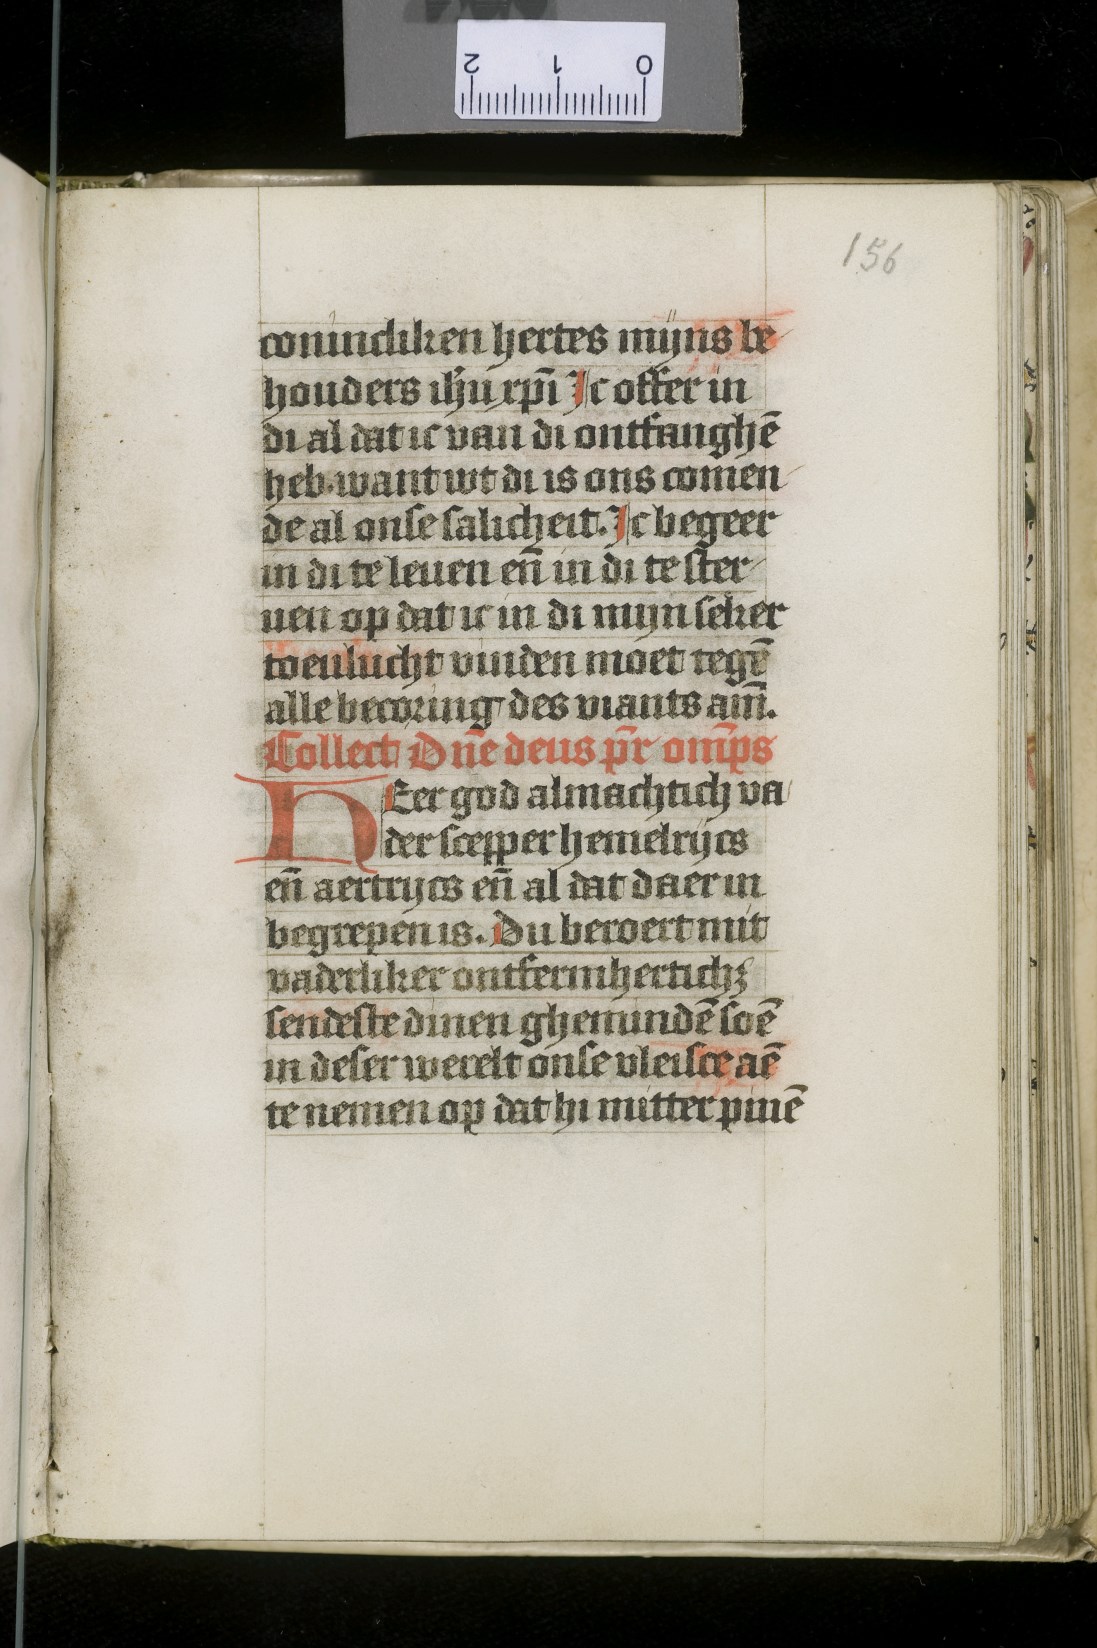 156
conincliken hertes mijns be
houders ih̄u xp̄i Ic offer in
di al dat ic van di ontfanghē
heb. want wt di is ons comen
de al onse salicheit. Ic begeer
in di te leuen en̄ in di te ster
uen op dat ic in di mijn seker
toeulucht vinden moet tegē
alle becoring des viants am̄.
Collect Dn̄e deus pr̄ om̄ps
HEer god almachtich va
der scepper hemelrijcs
en̄ aertrijcs en̄ al dat daer in
begrepen is. Du beroert mit
vaderliker ontfermherticħ
sendeste dinen ghemindē soē
in deser werelt onse vleisce aē
te nemen op dat hi mitter pinē
2 1 0